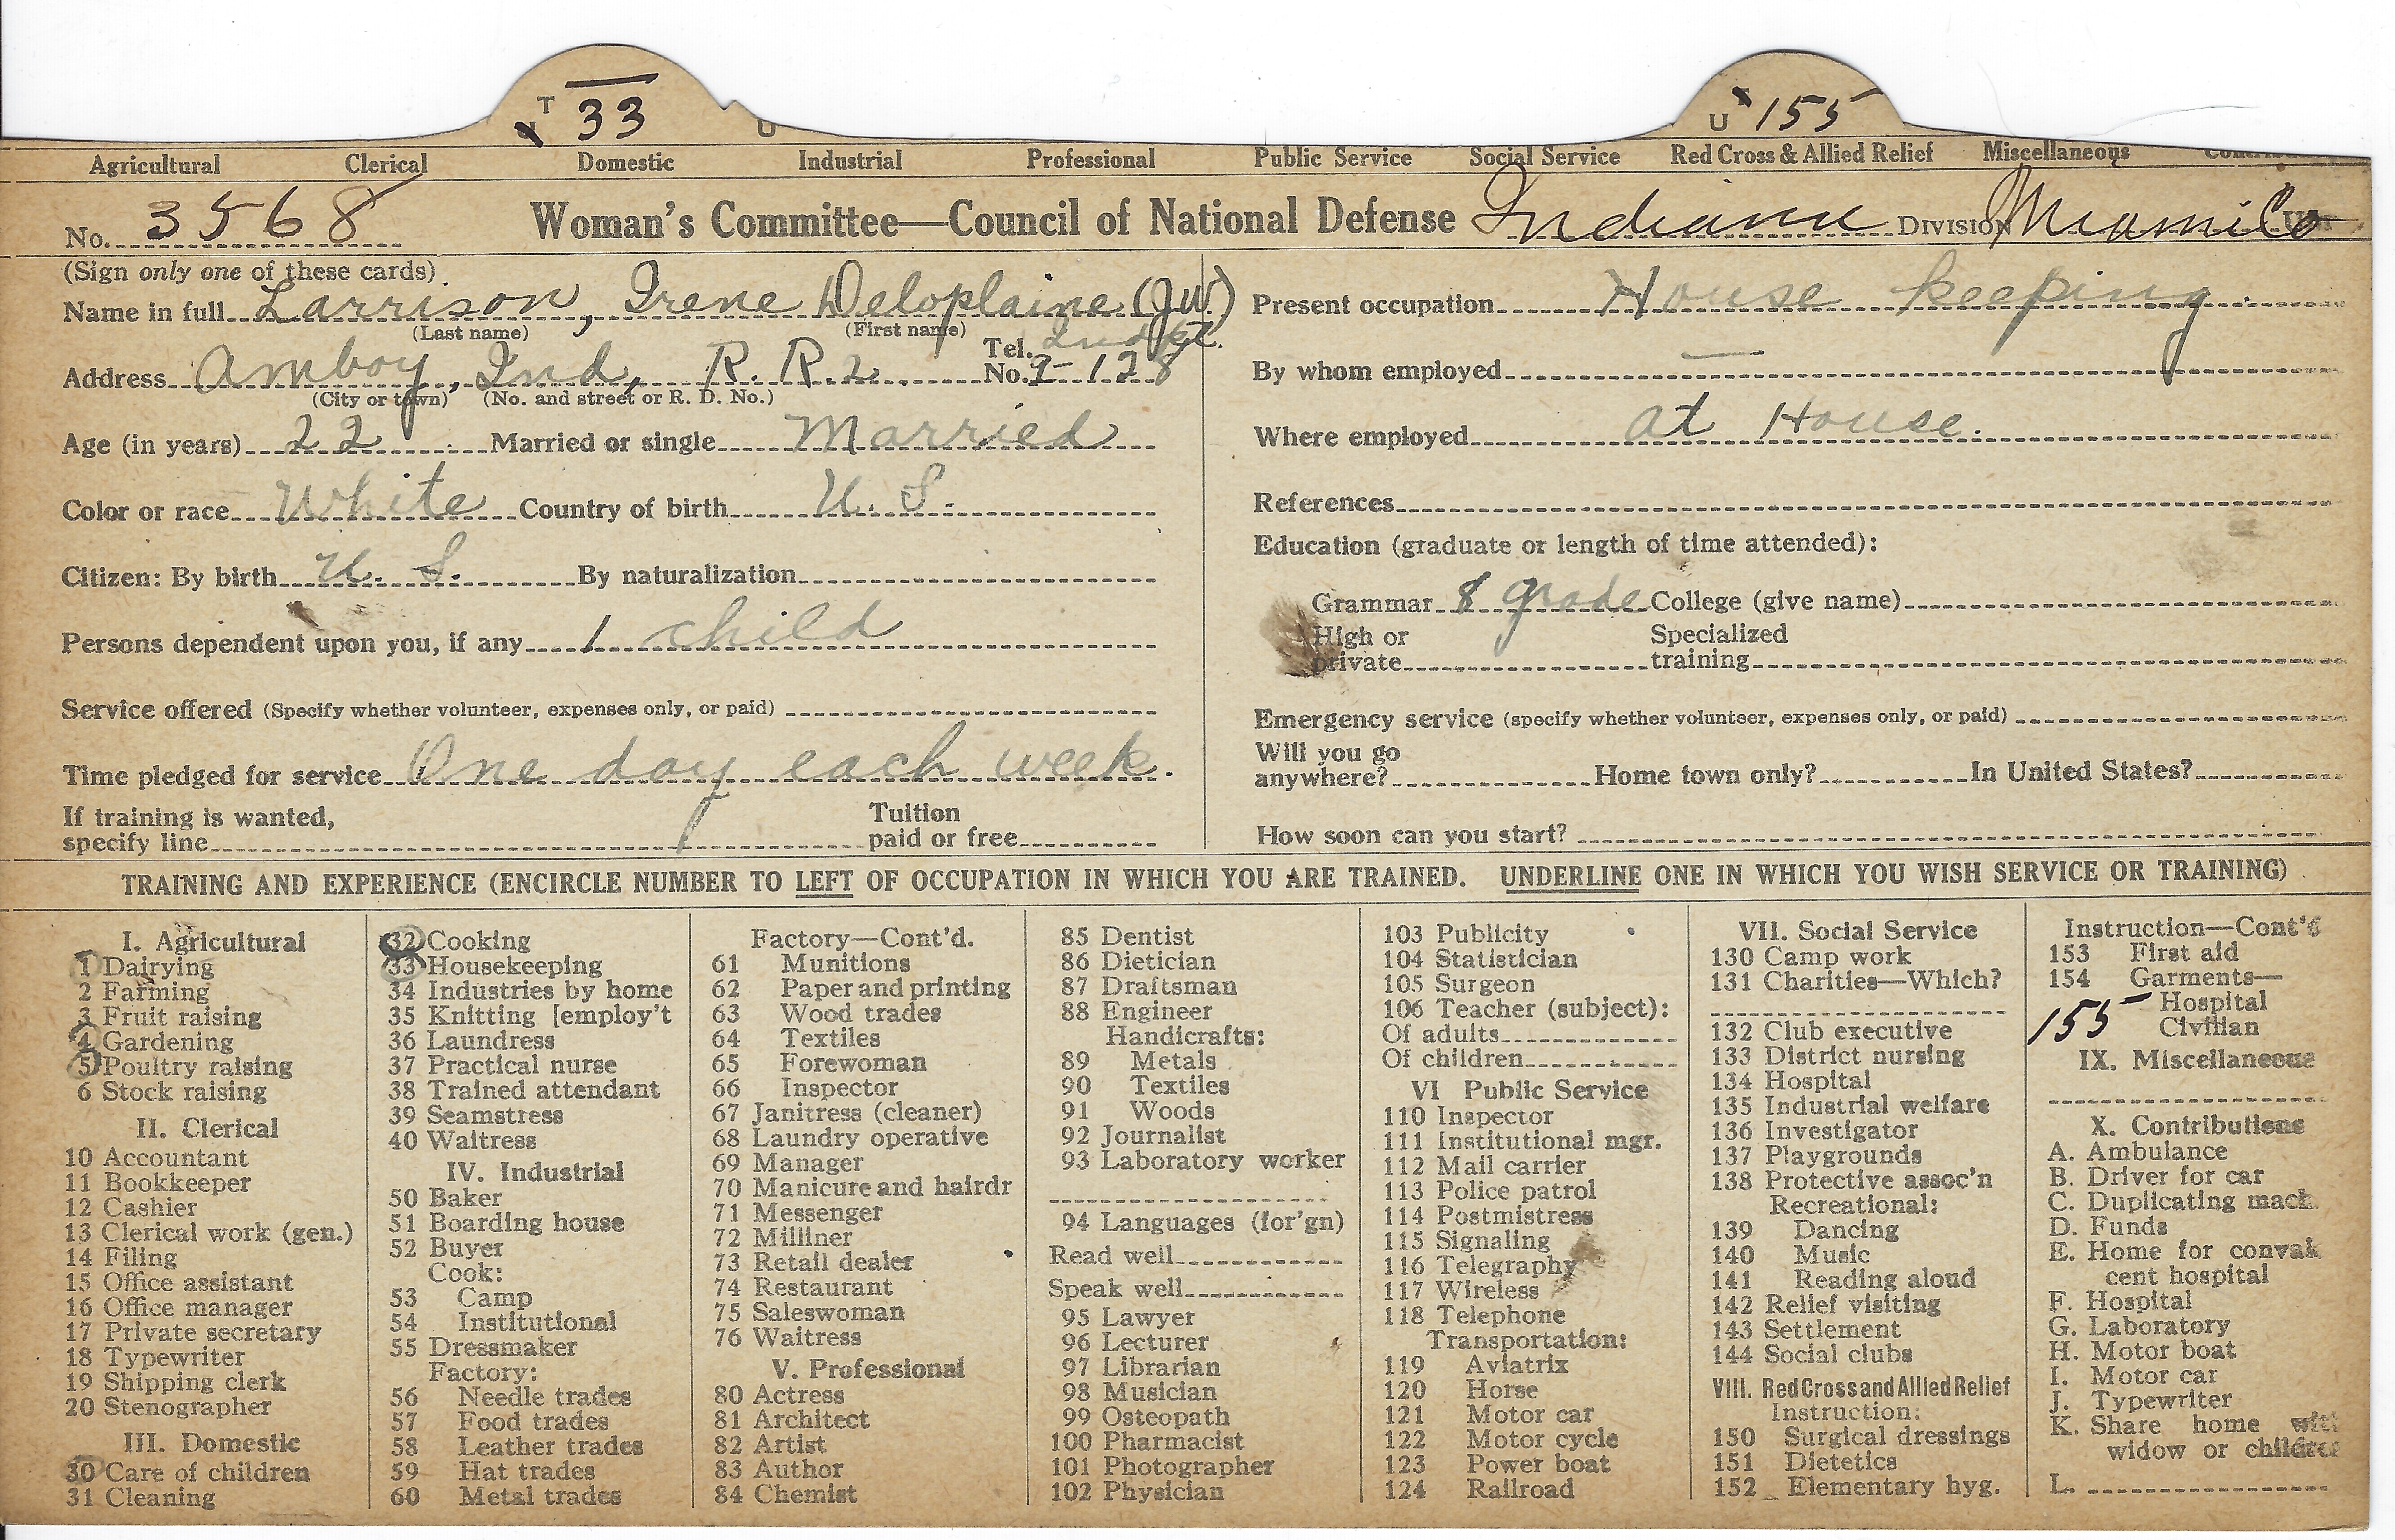 T 33 U U 155
Agricultural Clerical Domestic Industrial Professional Public Service Social Service Red Cross & Allied Relief Miscellaneous
No. 3568 Woman's Committee—Council of National Defense Indiana DIVISION Miami Co
(Sign only one of these cards)
Name in full Larrison, Irene Deloplaine (J.W.)
(Last name) (First name)
Address Amboy, Ind, R. R. 2. Tel. No. 2-128
(City or town) (No. and street or R. D. No.)
Age (in years) 22 Married or single Married
Color or race White Country of birth U. S.
Citizen: By birth U. S. By naturalization
Persons dependent upon you, if any 1 child
Service offered (Specify whether volunteer, expenses only, or paid)
Time pledged for service One day each week.
If training is wanted,
specify line Tuition paid or free
Present occupation House keeping
By whom employed —
Where employed at House.
References
Education (graduate or length of time attended):
Grammar 8 grade College (give name)
High or private Specialized training
Emergency service (specify whether volunteer, expenses only, or paid)
Will you go anywhere? Home town only? In United States?
How soon can you start?
TRAINING AND EXPERIENCE (ENCIRCLE NUMBER TO LEFT OF OCCUPATION IN WHICH YOU ARE TRAINED. UNDERLINE ONE IN WHICH YOU WISH SERVICE OR TRAINING)
I. Agricultural
1 Dairying
2 Farming
3 Fruit raising
4 Gardening
5 Poultry raising
6 Stock raising
II. Clerical
10 Accountant
11 Bookkeeper
12 Cashier
13 Clerical work (gen.)
14 Filing
15 Office assistant
16 Office manager
17 Private secretary
18 Typewriter
19 Shipping clerk
20 Stenographer
III. Domestic
30 Care of children
31 Cleaning
32 Cooking
33 Housekeeping
34 Industries by home
35 Knitting [employ't
36 Laundress
37 Practical nurse
38 Trained attendant
39 Seamstress
40 Waitress
IV. Industrial
50 Baker
51 Boarding house
52 Buyer
Cook:
53 Camp
54 Institutional
55 Dressmaker
Factory:
56 Needle trades
57 Food trades
58 Leather trades
59 Hat trades
60 Metal trades
Factory—Cont'd.
61 Munitions
62 Paper and printing
63 Wood trades
64 Textiles
65 Forewoman
66 Inspector
67 Janitress (cleaner)
68 Laundry operative
69 Manager
70 Manicure and hairdr
71 Messenger
72 Milliner
73 Retail dealer
74 Restaurant
75 Saleswoman
76 Waitress
V. Professional
80 Actress
81 Architect
82 Artist
83 Author
84 Chemist
85 Dentist
86 Dietician
87 Draftsman
88 Engineer
Handicrafts:
89 Metals
90 Textiles
91 Woods
92 Journalist
93 Laboratory worker
94 Languages (for'gn)
Read well
Speak well
95 Lawyer
96 Lecturer
97 Librarian
98 Musician
99 Osteopath
100 Pharmacist
101 Photographer
102 Physician
103 Publicity
104 Statistician
105 Surgeon
106 Teacher (subject):
Of adults
Of children
VI Public Service
110 Inspector
111 Institutional mgr.
112 Mail carrier
113 Police patrol
114 Postmistress
115 Signaling
116 Telegraphy
117 Wireless
118 Telephone
Transportation:
119 Aviatrix
120 Horse
121 Motor car
122 Motor cycle
123 Power boat
124 Railroad
VII. Social Service
130 Camp work
131 Charities—Which?
132 Club executive
133 District nursing
134 Hospital
135 Industrial welfare
136 Investigator
137 Playgrounds
138 Protective assoc'n
Recreational:
139 Dancing
140 Music
141 Reading aloud
142 Relief visiting
143 Settlement
144 Social clubs
VIII. Red Cross and Allied Relief
Instruction:
150 Surgical dressings
151 Dietetics
152 Elementary hyg.
Instruction—Cont'd
153 First aid
154 Garments—
Hospital
155 Civilian
IX. Miscellaneous
X. Contributions
A. Ambulance
B. Driver for car
C. Duplicating mach.
D. Funds
E. Home for conval
cent hospital
F. Hospital
G. Laboratory
H. Motor boat
I. Motor car
J. Typewriter
K. Share home with
widow or childre
L.